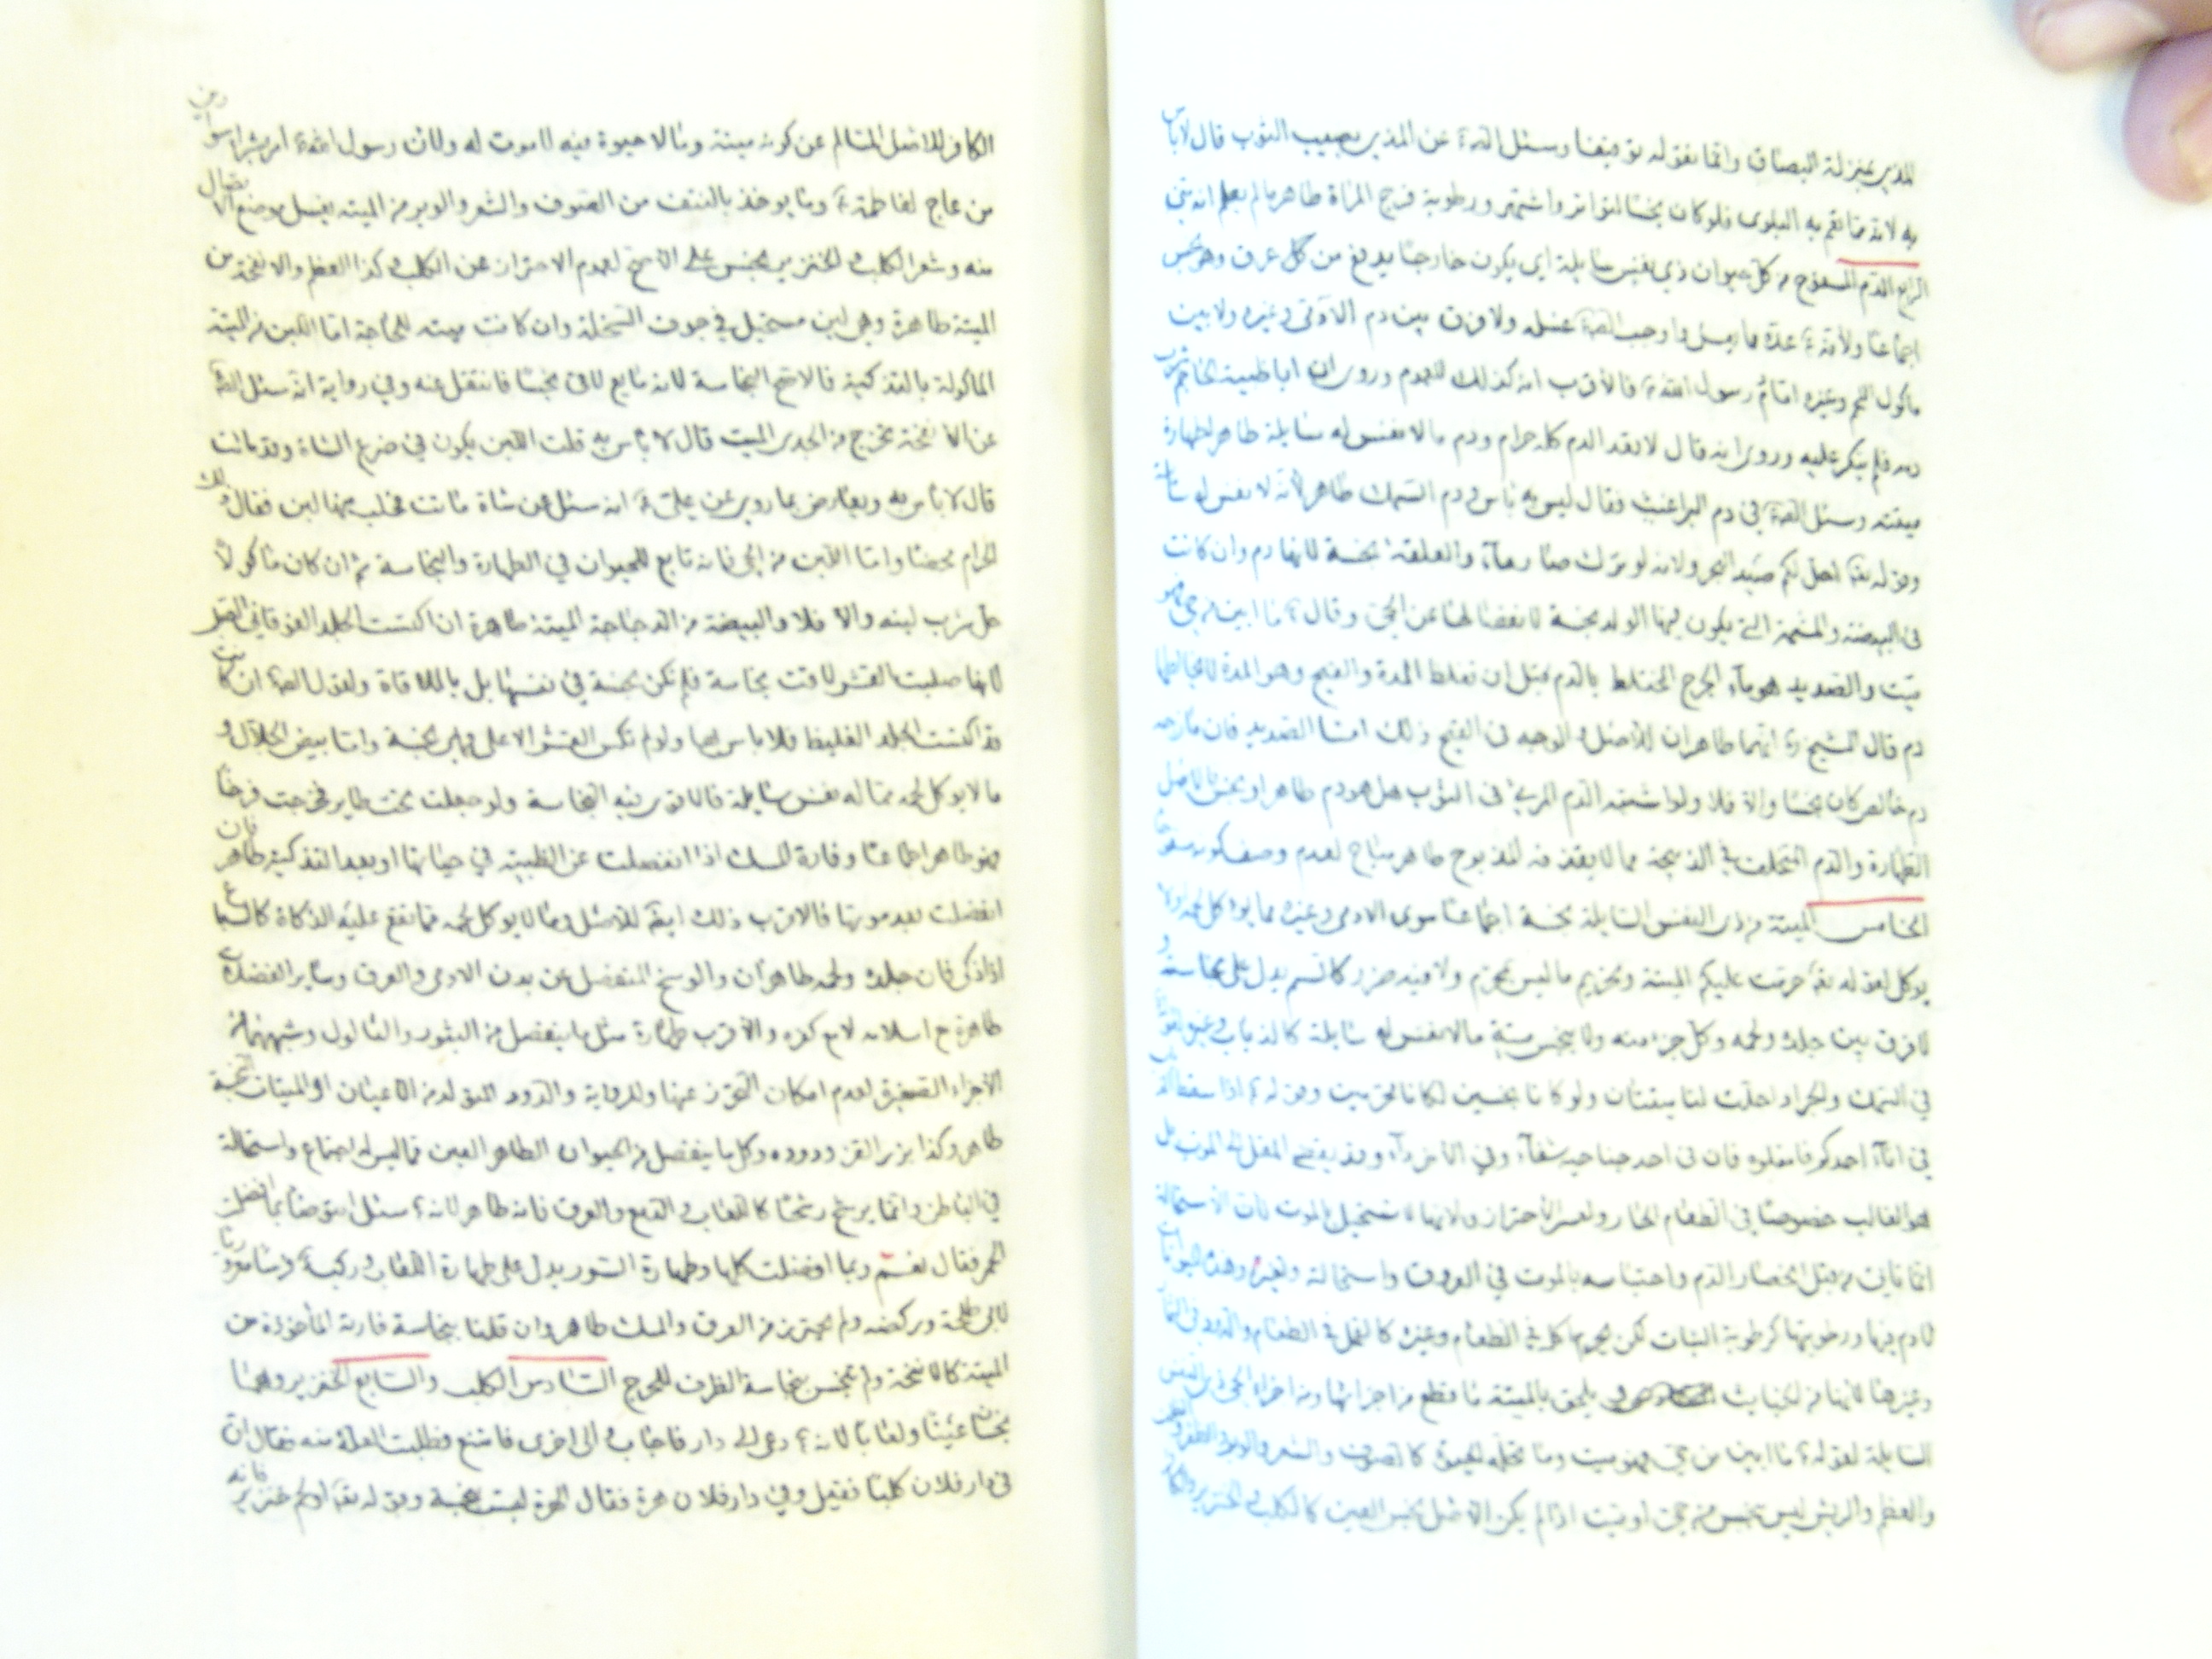 المذي بمنزلة البصاق وانما نقوله توقيفا وسئل الصّ؏ عن المذي يصيب الثوب قال لا باس
به لانه مما تعم به البلوى فلو كان نجسا لتواتر واشتهر ورطوبة فرج المراة طاهر ما لم يعلم انه مني
الرابع الدم المسفوح من كل حيوان ذي نفس سايلة اي يكون خارجا بدفع من كل عرق وهو نجس
اجماعا ولانه ؏ عده مما يغسل واوجب عسله ولا فرق بين دم الادمي وغيره ولا بين
ماكول اللحم وغيره اما دم رسول الله ؏ فالاقرب انه كذلك للعموم وروى ان ابا ظيبة الحاجم شرب
دمه فلم ينكر عليه وروى انه قال لا تعد الدم كله حرام ودم ما لا نفس له سايلة طاهر لطهارة
ميتته وسئل الصّ؏ في دم البراغيث فقال ليس به باس ودم السمك طاهر لانه لا نفس له سايلة
وقوله تعالى احل لكم صيد البحر ولانه لو ترك صار ماء والعلقة نجسة لانها دم وان كانت
في البيضة والمشيمة التي يكون فيها الولد نجسة لانفصالها عن الحي وقال ؏ ما ابين من حي فهو
ميت والصديد هو ماء الجرح المختلط بالدم قبل ان تغلظ المدة والقيح وهو المدة لا يخالطها
دم قال الشيخ ره انهما طاهران للاصل والوجه في القيح ذلك اما الصديد فان مازجه
دم خالص كان نجسا والا فلا ولو اشتبه الدم المرئي في الثوب هل هو دم طاهر او نجس فالاصل
الطهارة والدم المتخلف في الذبيحة مما لا يقذفه المذبوح طاهر مباح لعدم وصف كونه مسفوحا
الخامس الميتة من ذي النفس السايلة نجسة اجماعا سوى الادمي وغيره مما يوكل لحمه ولا
يوكل لقوله تعالى حرمت عليكم الميتة وتحريم ما ليس بمحرم ولا فيه ضرر كالسم يدل على نجاسته و
لا فرق بين جلده ولحمه وكل جزء منه ولا ينجس ميتة ما لا نفس له سايلة كالذباب وغيره لقوله
في السمك والجراد احلت لنا ميتتان ولو كانا نجسين لكانا محرمين وقوله ؏ اذا سقط الذباب
في اناء احدكم فامقلوه فان في احد جناحيه شفاء وفي الاخر داء وقد يفضي المقل الى الموت بل
هو الغالب خصوصا في الطعام الحار ولعسر الاحتراز ولانها لا تستحيل بالموت لان الاستحالة
انما تاتي من قبل انحصار الدم واحتباسه بالموت في العروق واستحالته وتغيره وهذه الحيوانات
لا دم فيها ورطوبتها كرطوبة النبات لكن يحرم اكله في الطعام وغيره كالنمل في الطعام والدود في الثمار
وغيرها لانها من الخبايث يلحق بالميتة ما قطع من اجزائها ومن اجزاء الحي ذي النفس
السايلة لقوله ؏ ما ابين من حي فهو ميت وما تحله الحيوة كالصوف والشعر والوبر والظفر
والعظم والريش ليس بنجس من حي او ميت اذا لم يكن الاصل نجس العين كالكلب والخنزير و
الكافر للاصل السالم عن كونه ميتة وما لا حيوة فيه لا موت له ولان رسول الله ؏ امر بشراء سوارين
من عاج لفاطمة ؏ وما يوخذ بالنتف من الصوف والشعر والوبر من الميتة يغسل موضع الاتصال
منه وشعر الكلب والخنزير نجس على الاصح لعموم الاحتراز عن الكلب وكذا العظم والانفحة من
الميتة طاهرة وهي لبن مستحيل في جوف السخلة وان كانت ميتة للحاجة اما اللبن من الميتة
الماكولة بالتذكية فالاصح النجاسة لانه مايع لاقى نجسا فانتقل عنه وفي رواية انه سئل الصّ؏
عن الانفحة تخرج من الجدي الميت قال لا باس به قلت اللبن يكون في ضرع الشاة وقد ماتت
قال لا باس به ويعارض بما روي عن علي ؏ انه سئل عن شاة ماتت فحلب منها لبن فقال ذلك
الحرام محضا واما اللبن من الحي فانه تابع للحيوان في الطهارة والنجاسة ثم ان كان ماكولا
حل شرب لبنه والا فلا والبيضة من الدجاجة الميتة طاهرة ان اكتست الجلد الفوقاني الصلب
لانها صلبت القشر لاقت نجاسة فلم تكن نجسة في نفسها بل بالملاقاة ولقول الصّ؏ ان كانت
قد اكتست الجلد الغليظ فلا باس بها ولو لم تكتس القشر الاعلى فهي نجسة واما بيض الجلال و
ما لا يوكل لحمه مما له نفس سايلة فالاقوى فيه النجاسة ولو جعلت تحت طاير فخرجت فرخا
فهو طاهر اجماعا وفارة المسك اذا انفصلت عن الظبية في حياتها او بعد التذكية طاهر فان
انفصلت بعد موتها فالاقرب ذلك ايضا للاصل وما لا يوكل لحمه مما تقع عليه الذكاة كالسباع
اذا ذكي فان جلده ولحمه طاهران والوسخ المنفصل عن بدن الادمي والعرق وساير الفضلات
طاهرة مع اسلامه لا مع كفره والاقرب طهارة مثل ما ينفصل من البثور والثالول وشبههما من
الاجزاء الصغيرة لعدم امكان التحرز عنها وللرواية والدود المتولد من الاعيان او الميتات النجسة
طاهر وكذا بزر القز ودوده وكل ما ينفصل من الحيوان الطاهر العين مما ليس له اجتماع واستحالة
في الباطن وانما يرشح رشحا كاللعاب والدمع والعرق فانه طاهر لانه ؏ سئل انتوضا بما افضلت
الحمر فقال نعم وبما افضلت كلها وطهارة السؤر يدل على طهارة اللعاب وركب ؏ فرسا معروريا
لابي طلحة وركضه ولم يحترز من العرق والمسك طاهر وان قلنا بنجاسة فارته الماخوذة من
الميتة كالانفحة ولم تنجس بنجاسة الظرف للحرج السادس الكلب والسابع الخنزير وهما
نجسان عينا ولعابا لانه ؏ دعي الى دار فاجاب والى اخرى فامتنع فطلبت العلة منه فقال ان
في دار فلان كلبا فقيل وفي دار فلان هرة فقال الهرة ليست بنجسة وقوله تعالى او لحم خنزير فانه